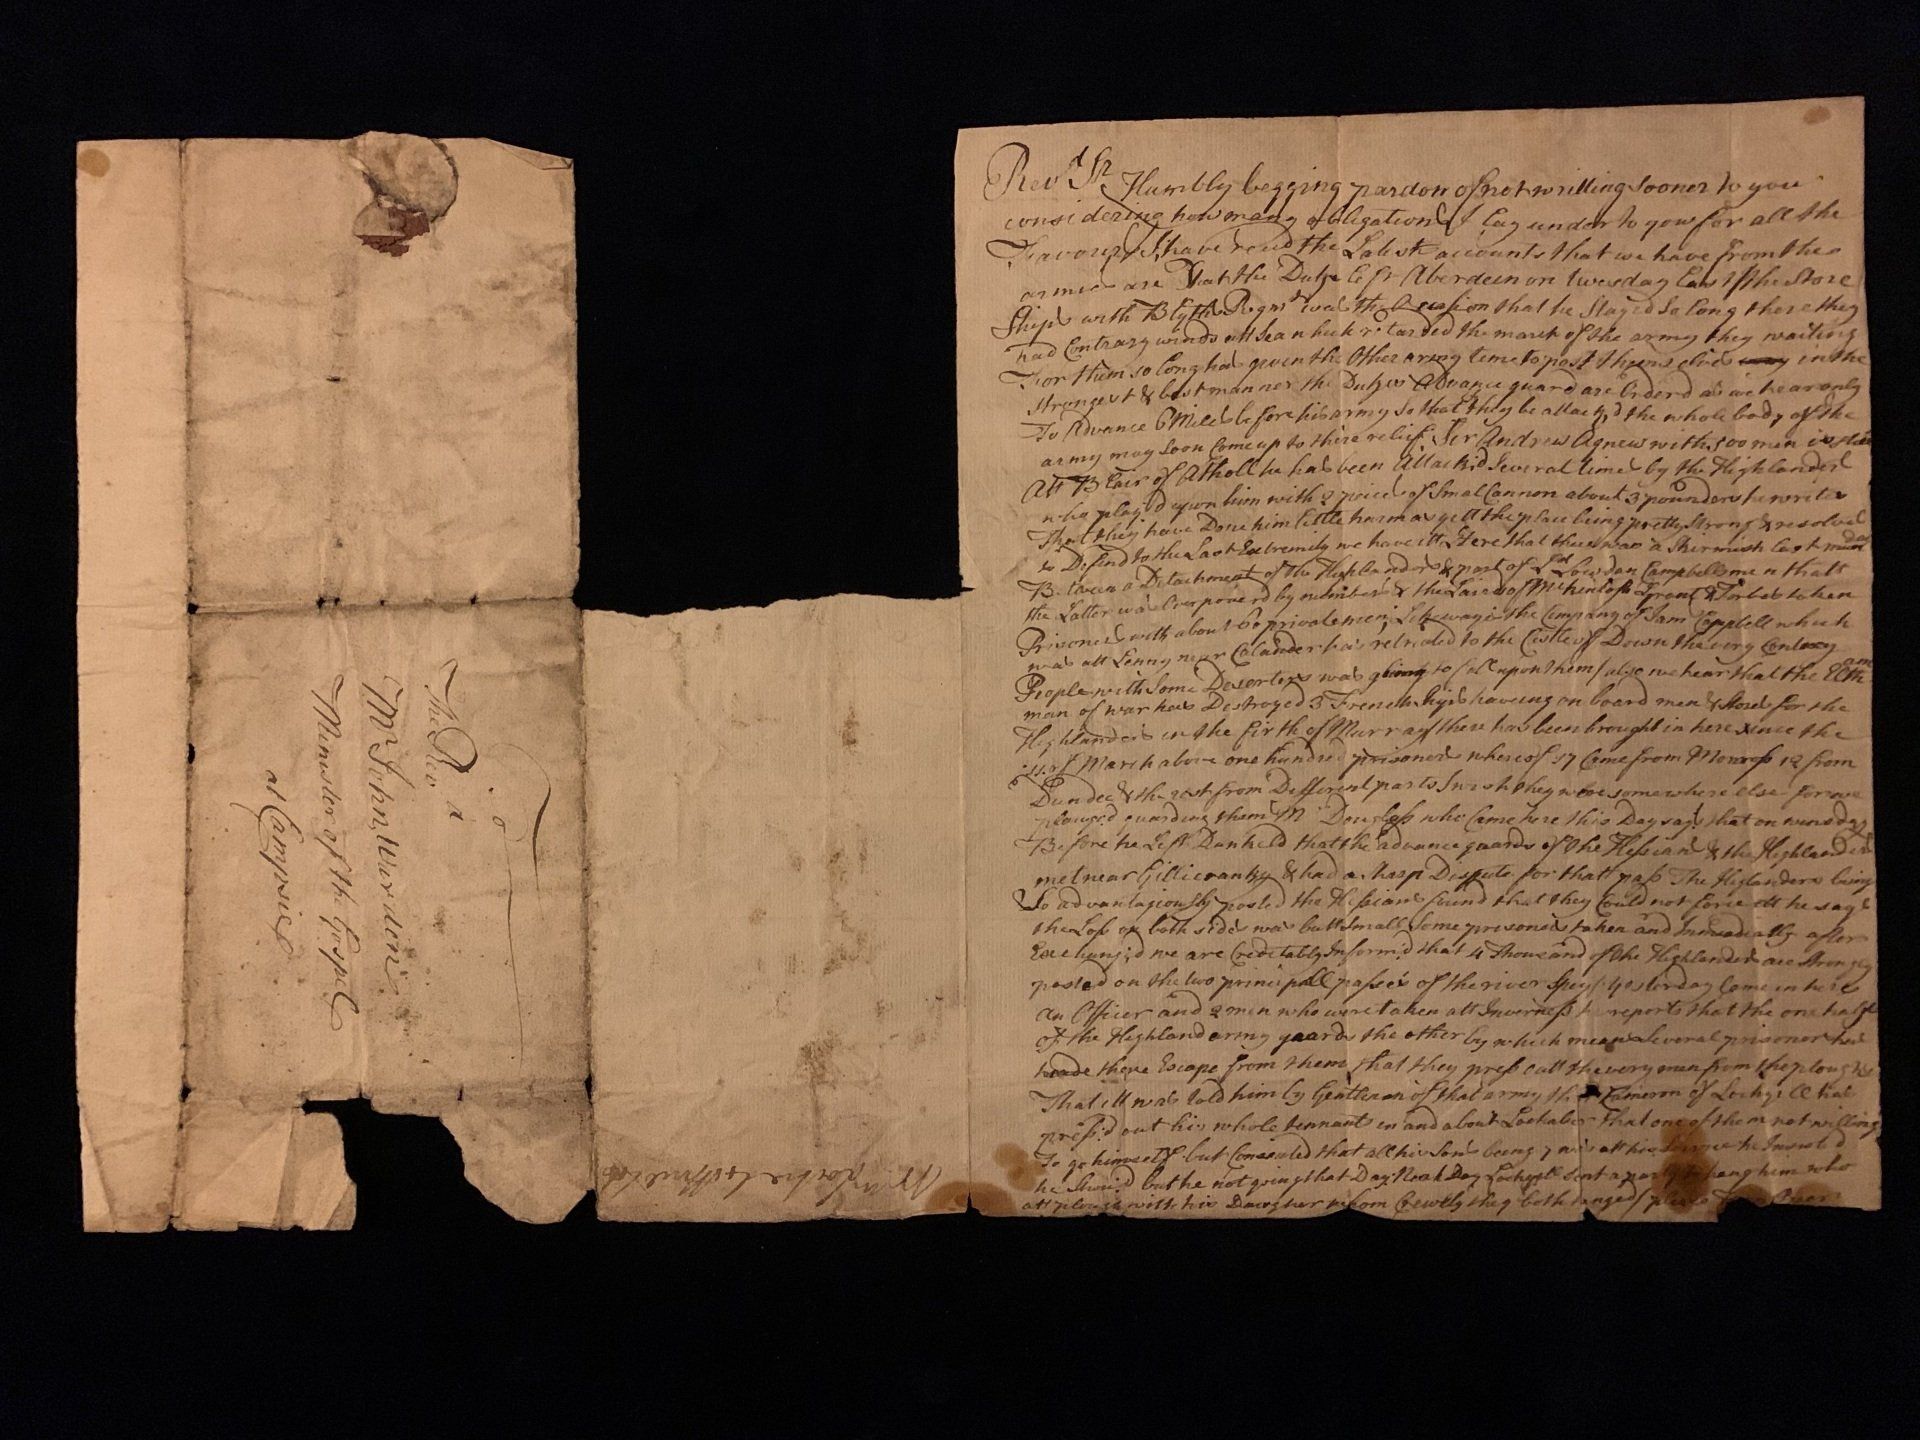 To
The Rev.d
Mr John Warden
Minister of the Gospel
at Campsie
Rev.d Sr Humbly begging pardon of not writting sooner to you
considering how many obligations I Lay under to you for all the
Favours I have recud the Latest accounts that we have from the
armies are That the Duke left Aberdeen on tuesday Last the Store
Ships with Blyths Regmt was the Occasion that he Stayed So Long there they
had Contrary winds att Sea which retarded the march of the army they waiting
For them so Long has given the Other army time to post themselves in the
strongest & best manner the Dukes Advance guard are Orderd as we hear only
To Advance 6 Miles before his army So that if they be attack'd the whole body of the
army may soon Come up to thire relief, Sir Andrew Agnew with 500 men is still
Att Blair of Atholl he has been Attack'd Several times by the Highlanders
who play'd upon him with 2 pieces of Smal Cannon about 3 pounders he writes
That they have Done him little harm as yett the place being pretty Strong & resolves
to Defend to the Last Extremity we have itt Here that there was a Skirmish Last
Between a Detachment of the Highlanders & part of Lrd Lowdan Campbells men thatt
the Latter was Overpowerd by numbers & the Lairds of McKintosh Grant & Forbes taken
Prisoners with about 60 private men; Likewayes the Company of Jam: Campbell which
was att Lenny near Calander has retreated to the Castle of Down the very Contrey
People with Some Deserters was going to fall upon them / also we hear that the Eltham
man of war has Destroyed 3 French Ships haveing on board men & Stores for the
Highlanders in the firth of Murray / there has been brought in here since the
of March above one hundred prisoners whereof 57 Came from Monross 12 from
Dundee & the rest from Different parts I wish they were somewhere else for we
plauged guarding them Mr Douglass who Came here this Day says that on
Before he Left Dunkeld that the advance guards of the Hessians & the Highlanders
met near Gillicranky & had a sharp Dispute for that pass The Highlanders being
So advantagiously posted the Hessians found that they Could not force itt he says
the Loss on both sides was butt Small Some prisoners taken and Immediatly after
Exchang'd we are Creditably Inform'd that 4 Thousand of the Highlanders are strongly
posted on the two principall passes of the river Spey / yesterday Came in here
an Officer and 2 men who were taken att Inverness he reports that the one half
of the Highland army guards the other by which means Several prisoners has
made there Escape from them, that they press outt the very men from the ploughs
That itt was told him by Gentleman of that army that Cameron of Lochyell has
press'd out his whole tennants in and about Lochaber That one of them not willing
To go himself but Consented that all his Sons being 7 was att his Service he Insisted
he Shou'd but he not going that Day Next Day Lochyell Sent a party to hang him who
att plough with his Daughter whom Crewely they both hanged / please